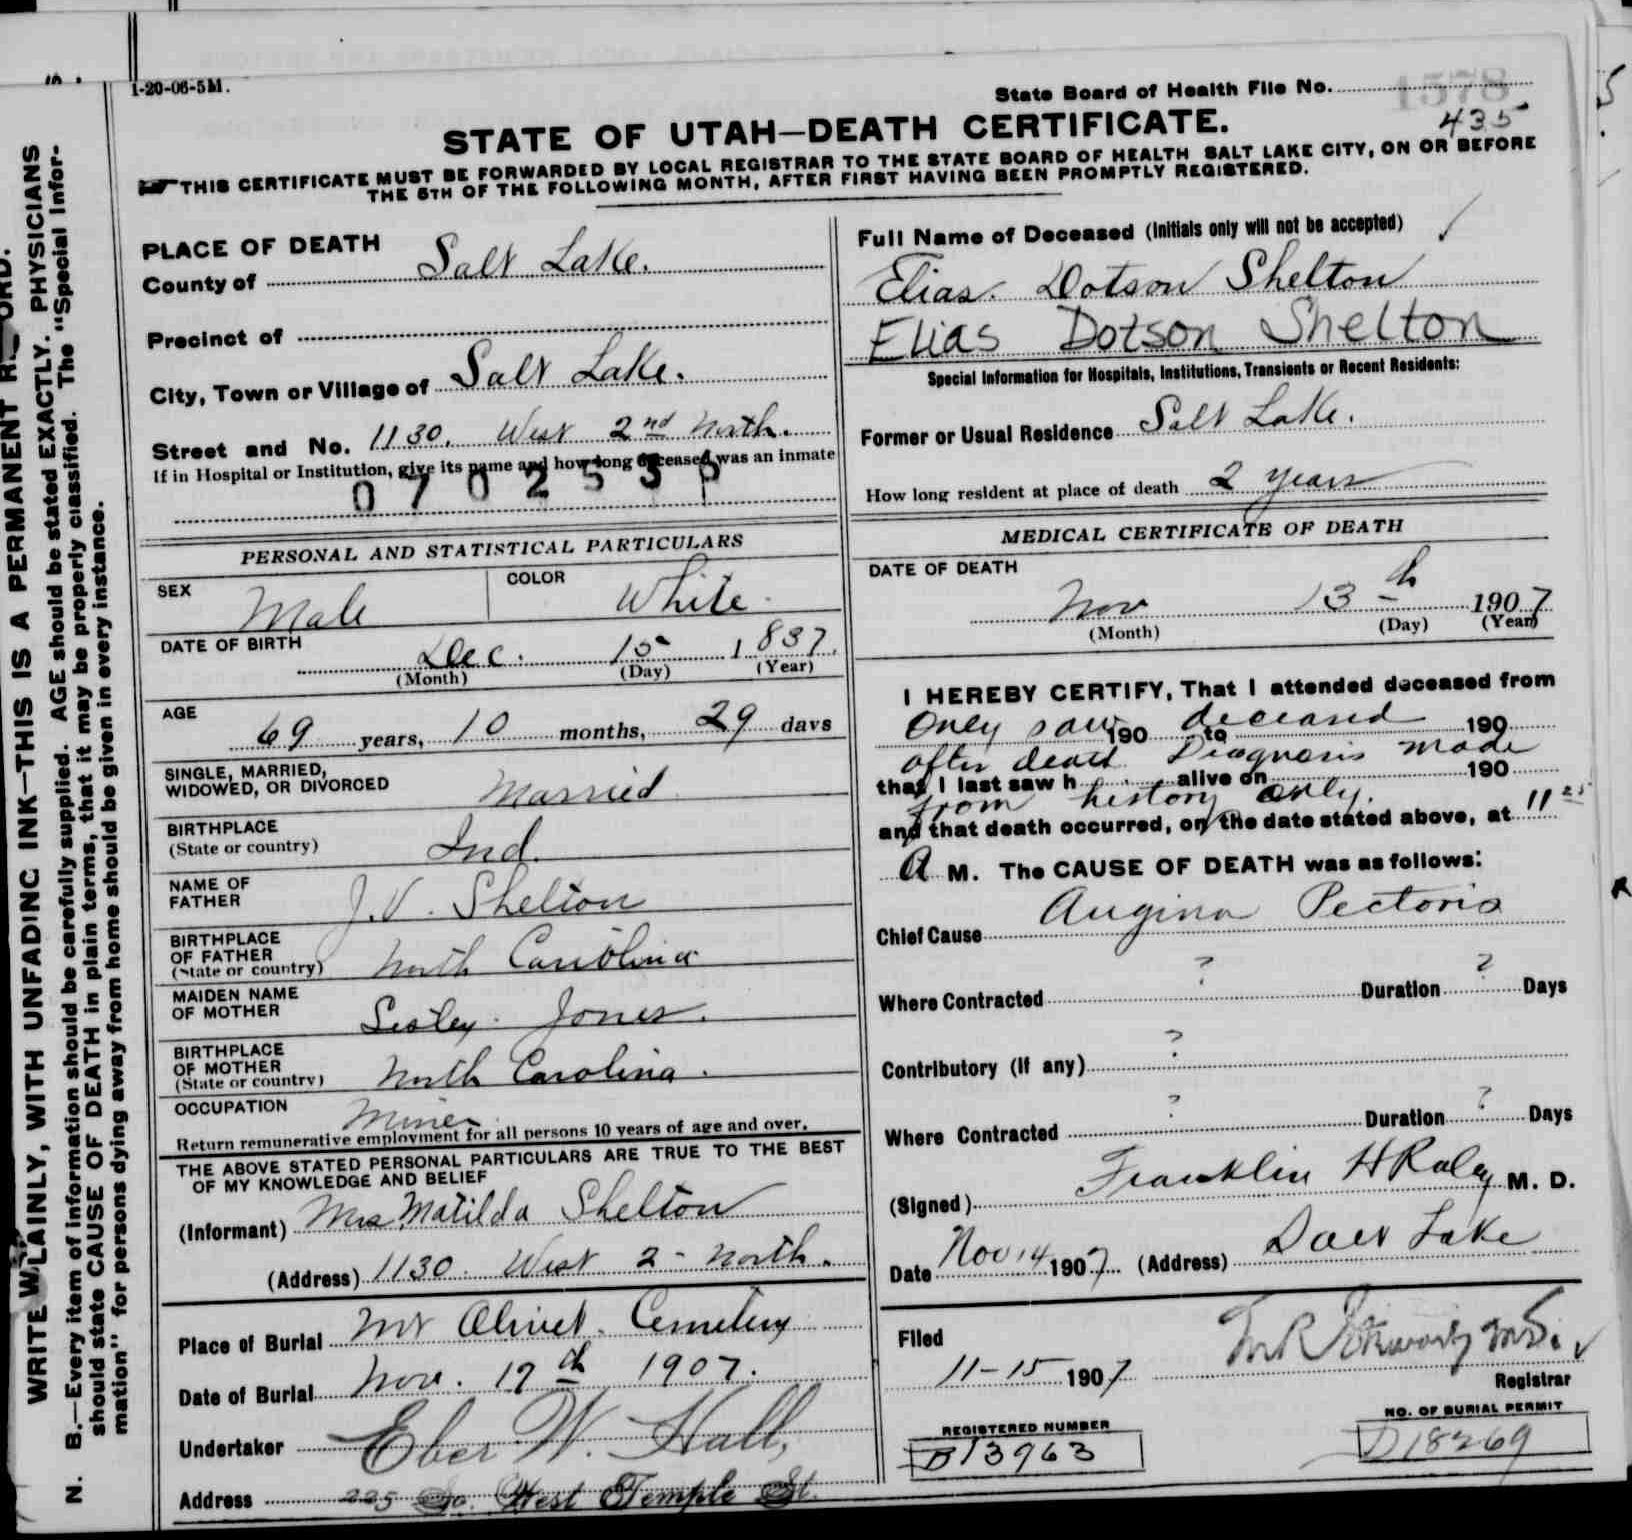 1-20-06-5M.
State Board of Health File No. 1578
435
STATE OF UTAH—DEATH CERTIFICATE.
THIS CERTIFICATE MUST BE FORWARDED BY LOCAL REGISTRAR TO THE STATE BOARD OF HEALTH SALT LAKE CITY, ON OR BEFORE
THE 5TH OF THE FOLLOWING MONTH, AFTER FIRST HAVING BEEN PROMPTLY REGISTERED.
WRITE PLAINLY, WITH UNFADING INK—THIS IS A PERMANENT
N. B.—Every item of information should be carefully supplied. AGE should be stated EXACTLY. PHYSICIANS
should state CAUSE OF DEATH in plain terms, that it may be properly classified. The "Special Infor-
mation" for persons dying away from home should be given in every instance.
PLACE OF DEATH
County of Salt Lake.
Precinct of
City, Town or Village of Salt Lake.
Street and No. 1130. West 2nd North.
If in Hospital or Institution, give its name and how long deceased was an inmate
PERSONAL AND STATISTICAL PARTICULARS
SEX Male COLOR White
DATE OF BIRTH Dec. 15 1837.
(Month) (Day) (Year)
AGE
69 years, 10 months, 29 days
SINGLE, MARRIED,
WIDOWED, OR DIVORCED Married
BIRTHPLACE
(State or country) Ind.
NAME OF
FATHER J.V. Shelton
BIRTHPLACE
OF FATHER
(State or country) North Carolina
MAIDEN NAME
OF MOTHER Jones.
BIRTHPLACE
OF MOTHER
(State or country) North Carolina.
OCCUPATION Miner
Return remunerative employment for all persons 10 years of age and over.
THE ABOVE STATED PERSONAL PARTICULARS ARE TRUE TO THE BEST
OF MY KNOWLEDGE AND BELIEF
(Informant) Mrs Matilda Shelton
(Address) 1130. West 2- North.
Place of Burial Mt Olivet. Cemetery
Date of Burial Nov. 17th 1907.
Undertaker Eber W. Hall,
Address 225 So. West Temple St.
Full Name of Deceased (Initials only will not be accepted)
Elias. Dotson Shelton
Elias Dotson Shelton
Special Information for Hospitals, Institutions, Transients or Recent Residents:
Former or Usual Residence Salt Lake.
How long resident at place of death 2 years
MEDICAL CERTIFICATE OF DEATH
DATE OF DEATH
Nov 13th 1907
(Month) (Day) (Year)
I HEREBY CERTIFY, That I attended deceased from
Only saw deceased
190 to 190
after death Diagnosis made
that I last saw h alive on 190
from history only.
and that death occurred, on the date stated above, at 11 25
A M. The CAUSE OF DEATH was as follows:
Chief Cause Angina Pectoris
Where Contracted ? Duration ? Days
Contributory (if any) ?
Where Contracted ? Duration ? Days
(Signed) Franklin H Raley M. D.
Date Nov 14 1907 (Address) Salt Lake
Filed
11-15 1907
Registrar
REGISTERED NUMBER
B13963
NO. OF BURIAL PERMIT
D18269